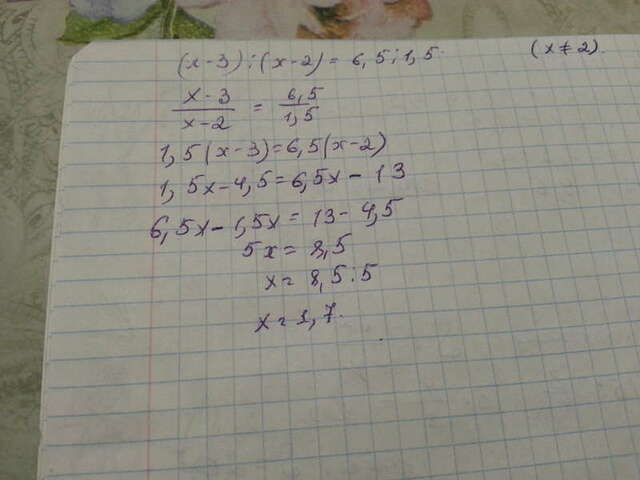 (x-3):(x-2)=6,5:1,5. (x≠2).
x-3/x-2 = 6,5/1,5
1,5(x-3)=6,5(x-2)
1,5x-4,5=6,5x-13
6,5x-1,5x=13-4,5
5x=8,5
x=8,5:5
x=1,7.